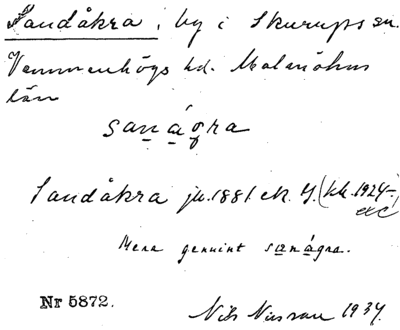 Sandåkra, by i Skurups sn.
Vemmenhögs hd. Malmöhus
län
sanágra
Sandåkra jr. 1881. ek. G. (kk. 1924-
Mera genuint sanágra.
Nr 5872.
Nils 1934.